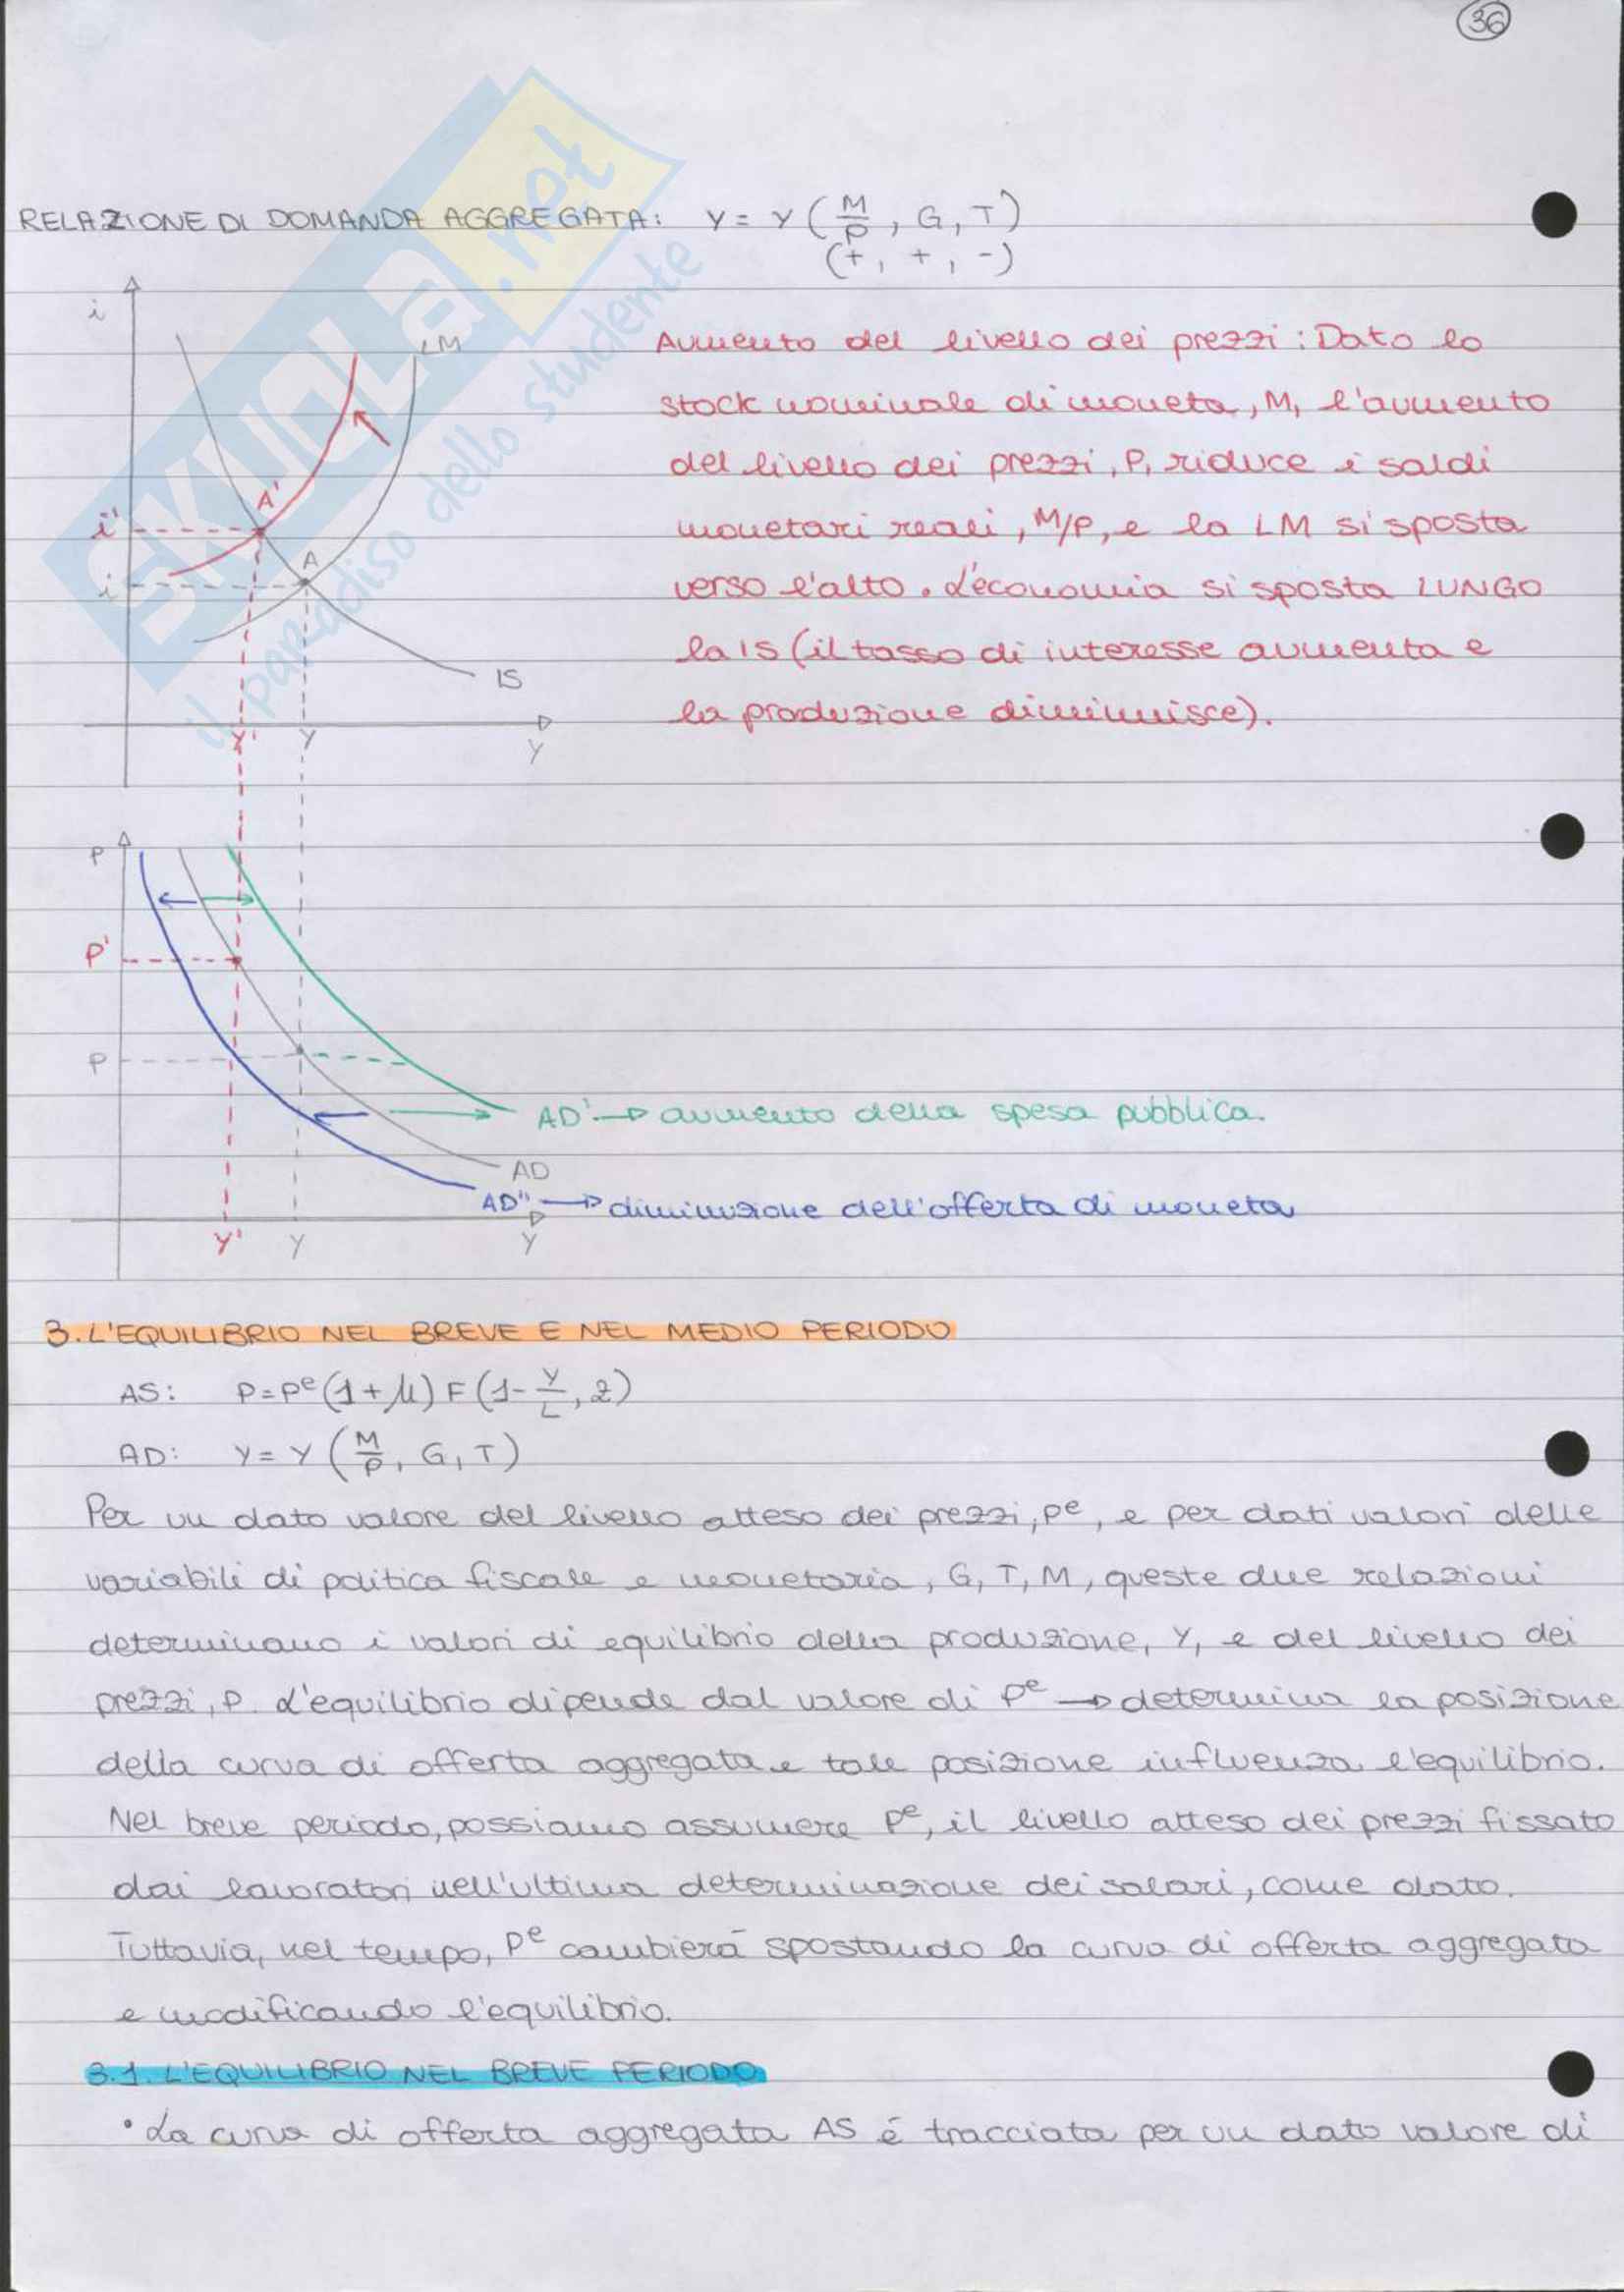 36
RELAZIONE DI DOMANDA AGGREGATA: Y = Y (M/P, G, T)
(+, +, -)
i
LM
A'
i'
A
i
IS
Y' Y Y
Aumento del livello dei prezzi: Dato lo
stock nominale di moneta, M, l'aumento
del livello dei prezzi, P, riduce i saldi
monetari reali, M/P, e la LM si sposta
verso l'alto. L'economia si sposta LUNGO
la IS (il tasso di interesse aumenta e
la produzione diminuisce).
SKUOLA.net
il paradiso dello studente
P
P'
P
AD' → aumento della spesa pubblica.
AD
AD'' → diminuzione dell'offerta di moneta
Y' Y Y
3. L'EQUILIBRIO NEL BREVE E NEL MEDIO PERIODO
AS: P = Pᵉ (1 + μ) F (1 - Y/L, z)
AD: Y = Y (M/P, G, T)
Per un dato valore del livello atteso dei prezzi, Pᵉ, e per dati valori delle
variabili di politica fiscale e monetaria, G, T, M, queste due relazioni
determinano i valori di equilibrio della produzione, Y, e del livello dei
prezzi, P. L'equilibrio dipende dal valore di Pᵉ → determina la posizione
della curva di offerta aggregata e tale posizione influenza l'equilibrio.
Nel breve periodo, possiamo assumere Pᵉ, il livello atteso dei prezzi fissato
dai lavoratori nell'ultima determinazione dei salari, come dato.
Tuttavia, nel tempo, Pᵉ cambierà spostando la curva di offerta aggregata
e modificando l'equilibrio.
3.1. L'EQUILIBRIO NEL BREVE PERIODO
• La curva di offerta aggregata AS è tracciata per un dato valore di